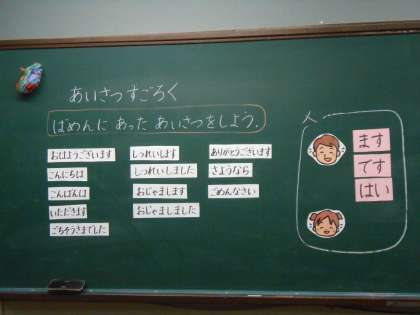 あいさつすごろく
ばめんに あった あいさつをしよう。
おはようございます
こんにちは
こんばんは
いただきます
ごちそうさまでした
しつれいします
しつれいしました
おじゃまします
おじゃましました
ありがとうございます
さようなら
ごめんなさい
ます
です
はい